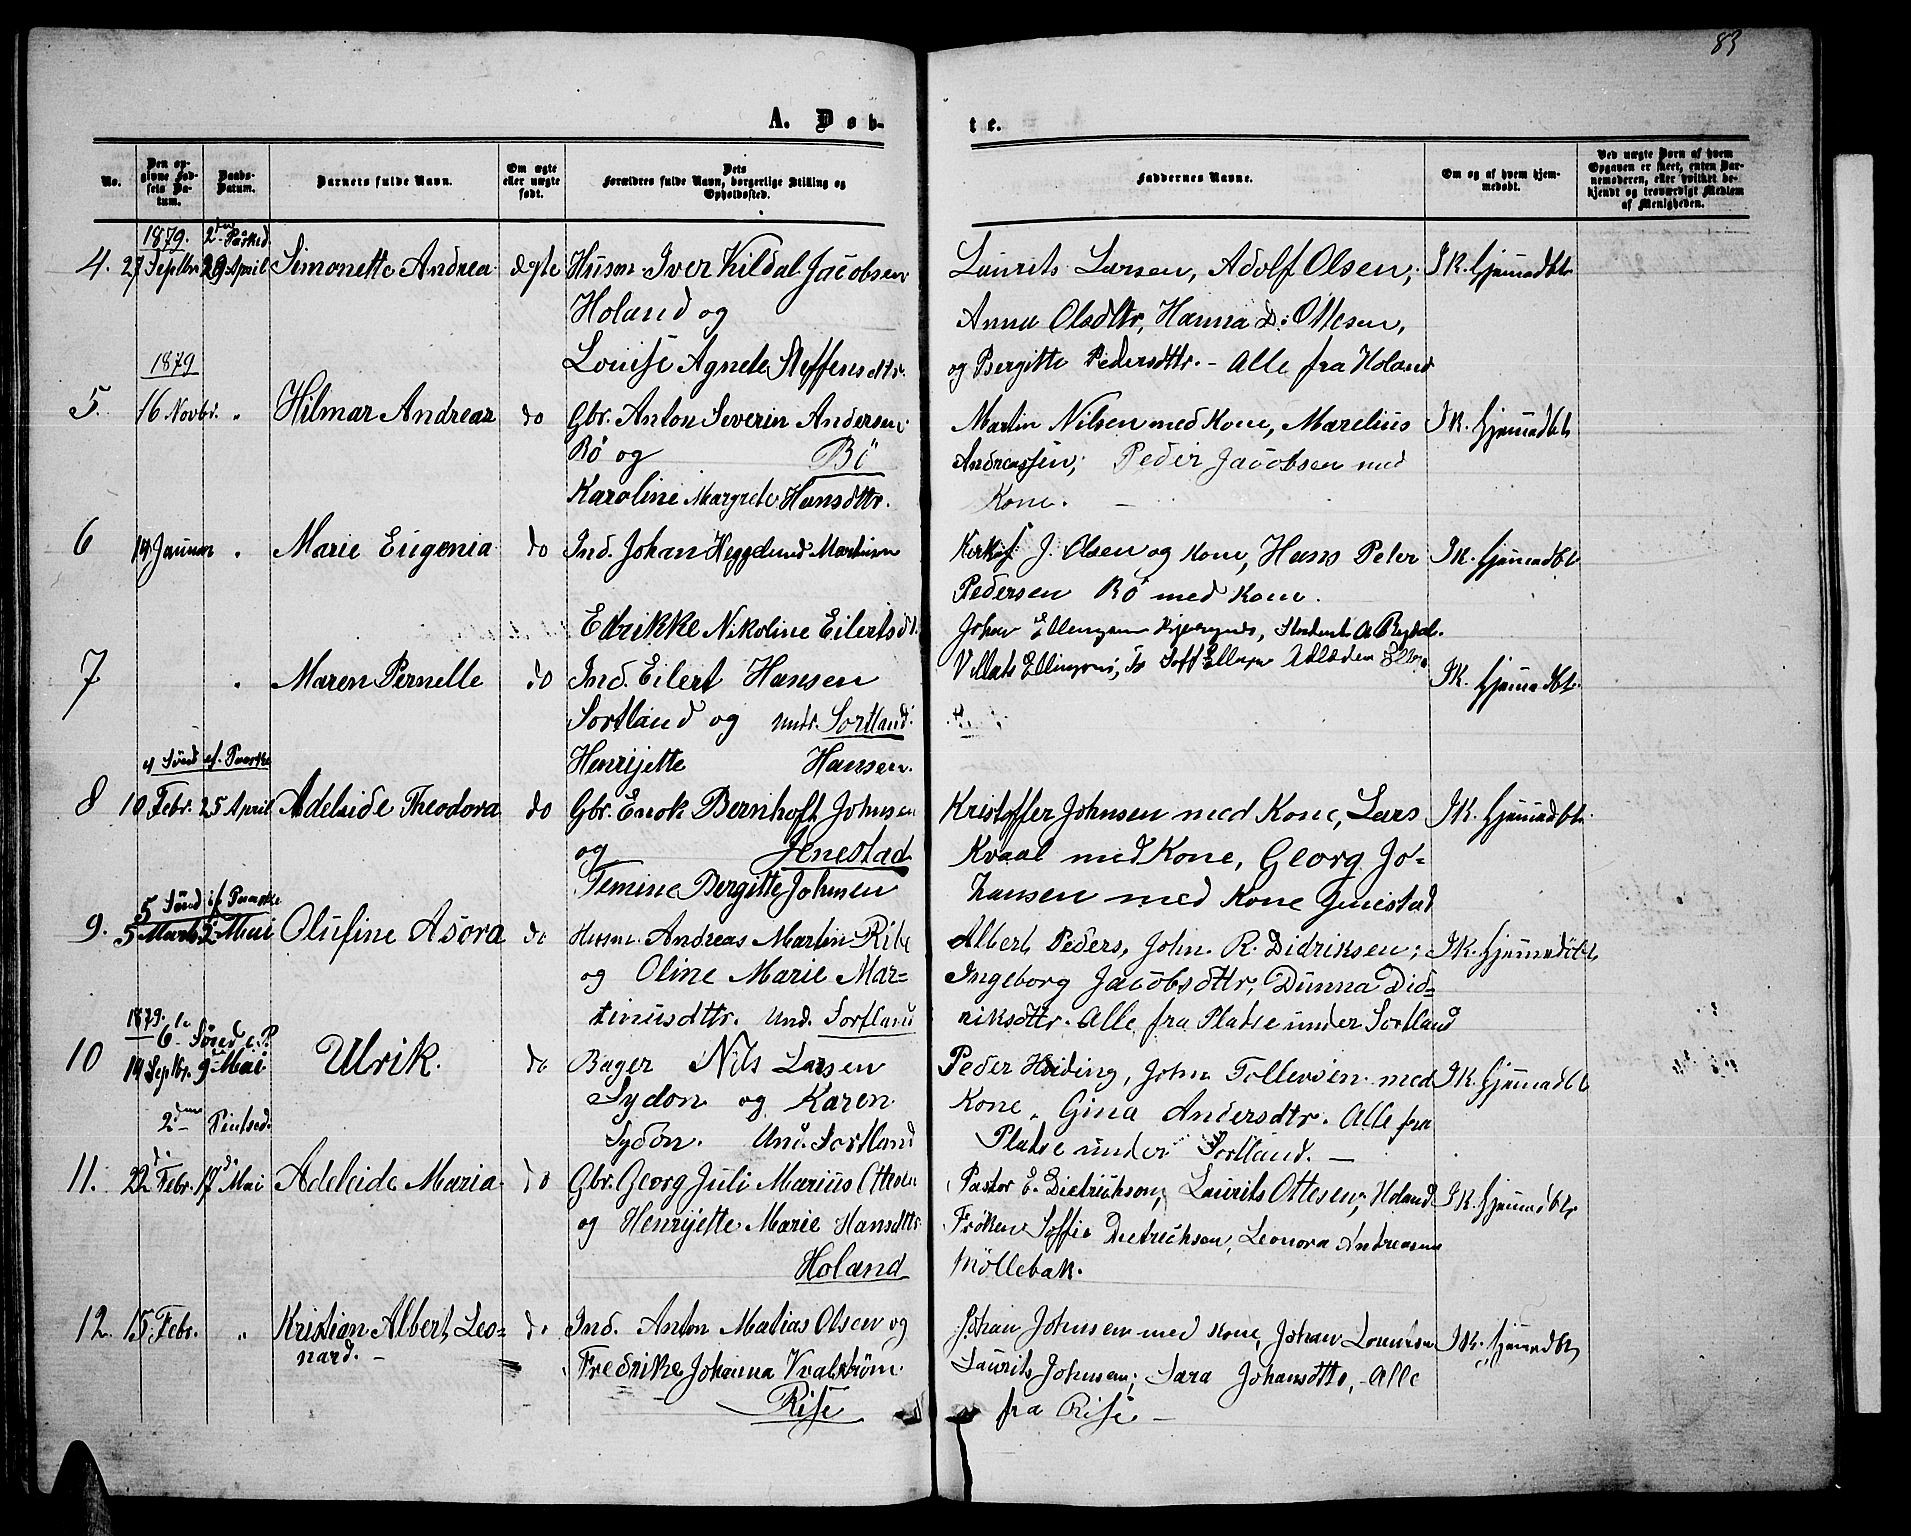 83
A. Døb-
te.
No.
Den opgivne Fødsels Datum.
Daabs-Datum.
Barnets fulde Navn.
Om ægte eller uægte født.
Dets Forældres fulde Navn, borgerlige Stilling og Opholdssted.
Faddernes Navne.
Om og af hvem hjemmedøbt.
Ved uægte Børn af hvem Opgaven er skeet, enten Barnemoderen, eller hvilket bekjendt og troværdigt Medlem af Menigheden.
1879. 2den Påsked.
4. 27 Septbr 29 April Simonette Andrea ægte Husm. Iver Kildal Jacobsen
Holand og
Louise Agnete Steffensdtr.
Laurits Larsen, Adolf Olsen,
Anna Olsdtr, Hanna D. Ottesen,
og Bergitte Pedersdttr. - Alle fra Holand
I K. hjemmedbt
1879
5. 16 Novbr. " Hilmar Andreas do Gbr. Anton Severin Andersen
Bø og Bö
Karoline Margrete Hansdttr.
Martin Nilsen med Kone, Marelius
Andreassen, Peder Jacobsen med
Kone. -
I K. hjemmedbt
6 19 Januar " Marie Eugenia do Ind. Johan Heggelund Martinsen
Edrikke Nikoline Eilertsdt.
J. Olsen og Kone, Hans Peter
Pedersen Bö med Kone.
I K. hjemmedbt
7 " Maren Pernelle do Ind. Eilert Hansen
Sortland og undr. Sortland.
Henrijette Hansen.
Johan Ellingsen
I K. hjemmedbt.
4 Sönd. ef. Paaske
8 10 Febr. 25 April Adelside Theodora do Gbr. Enok Bernhoft Johnsen
og Jenestad
Femine Bergitte Johnsen
Kristoffer Johnsen med Kone, Lars
Kvaal med Kone, Georg Jo-
hansen med Kone Jenestad
I K. hjemmedbt.
5 Sönd. ef Paaske
9. 5 Marts 2 Mai Olufine Asora do Husm. Andreas Martin Ribe
og Oline Marie Mar-
tinusdttr. Und. Sortland
Albert Peders, John R. Didriksen;
Ingeborg Jacobsdttr, Dunna Did-
riksdttr. Alle fra Pladse under Sortland
I K. hjemmedöbt
1879. 6te Sönd e. P.
10 19 Septbr. 9 Mai Ulrik. do Bager Nils Larsen
Sydon og Karen
Sydon. Und. Sortland
Peder Hoiding, John Tollevsen med
Kone, Gina Andersdtr. Alle fra
Pladse under Sortland. -
I K. hjemmedbt
2den Pintsed.
11. 22 Febr. 17 Mai Adeleide Maria do Gbr. Georg Juli Marius Ottesen
og Henrijette Marie Hansdttr
Holand
Pastor E. Dietrichson, Laurits Ottesen, Holand
Fröken Soffie Dietrichson, Leonora Andreasen
Möllebak.
I K. hjemmedbt
12. 15 Febr. " Kristian Albert Leo-
nard. -
do Ind. Anton Matias Olsen og
Fredrikke Johanna Kvalström
Rise
Johan Johnsen med Kone, Johan
Laurits Johnsen; Sara Johansdttr, - Alle
fra Rise -
I K. hjemmedbt